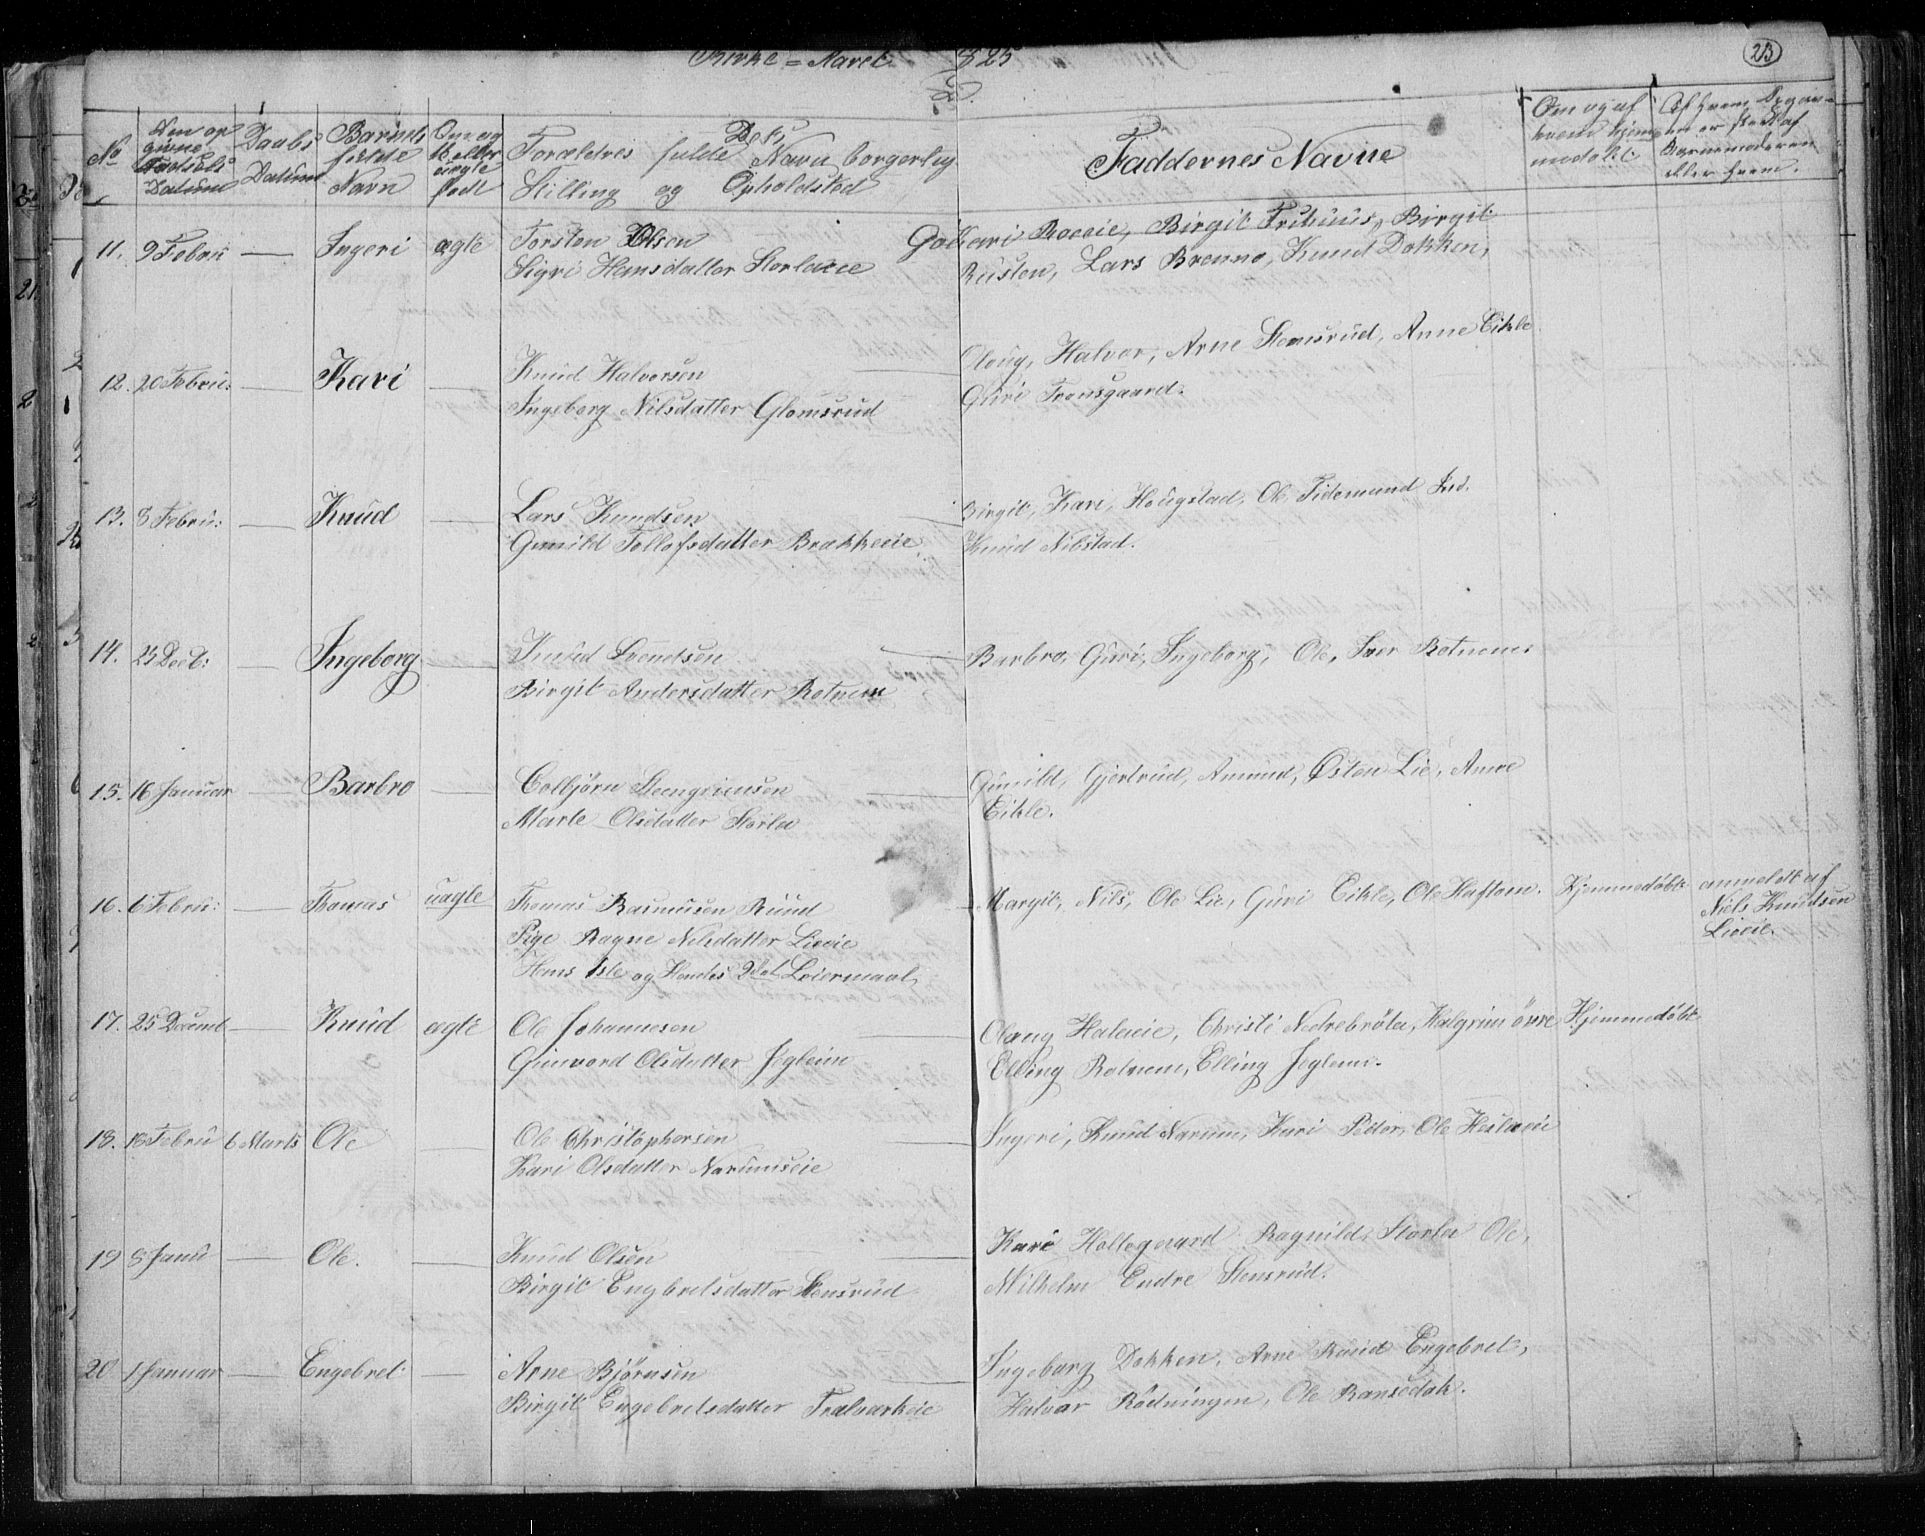 Kirke-Aaret 1825
23
No
Den op
givne
Fødsels
Datum
Daabs
Datum
Barnets
fulde
Navn
Om æg
te eller
uægte
født
Dets
Forældres fulde Navn borgerlig
Stilling og Opholdsted
Faddernes Navne
Om og af
hvem hjem
medøbt
Af hvem
er skedt af
Barnemoderen
eller hvem.
11. 9 Febru — Ingeri ægte Torsten Olsen
Sigri Hansdatter
Birgit Birgit
Rusten, Lars Brenno, Knud Dokken,
12. 20 Febru: — Kari — Knud Halvorsen
Ingeborg Nilsdatter Glomsrud
Oloug, Halvor, Arne Stensrud, Anne Eikle
Guri Tronsgaard.
13. 8 Febru: — Knud — Lars Knudsen
Gunild Tollofsdatter Brakkeeie
Birgit, Kari, Hougstad, Ole
Knud Nibstad.
14. 25 Dect: — Ingeborg — Knud Svendsen
Birgit Andersdatter Rotnem
Barbro, Guri, Ingeborg, Ole, Iver Rotnem.
15. 16 Januar — Barbro — Colbjørn Steengrimsen
Marte Olsdatter Storla
Gunild, Gjertrud, Amund, Østen Lie, Anne
Eikle.
16. 6 Febru: — Thomas uægte Thomas Rasmusen Ruud
Pige Ragne Nilsdatter Lieeie
Hans 1ste og Hendes 2det Leiermaal
Margit, Nils, Ole Lie, Guri Eikle, Ole Haftorn. Hjemmedøbt
anmeldt af
Niels Knudsen
Lieeie.
17. 25 Decemb — Knud ægte Ole Johannesen
Gunvord Olsdatter Jegleim
Olaug Haleeie, Christi Nedrebråta, Halgrim øvre Hjemmedøbt
Elling Rotnem, Elling Jeglem.
18. 18 Febru 6 Marts Ole — Ole Christophersen
Kari Olsdatter Narumseie
Ingeri, Knud Narum, Kari Peder, Ole
19 8 Janu — Ole. — Knud Olsen
Birgit Engbretsdatter Stensrud
Kari Haltegaard Ragnild, Storla Ole,
Milhelm Endre Stensrud.
20 1 Januar — Engebret — Arne Bjørnsen
Birgit Engebretsdatter
Ingeborg Dokken, Arne Ruud Engebret,
Halvor Rødningen, Ole